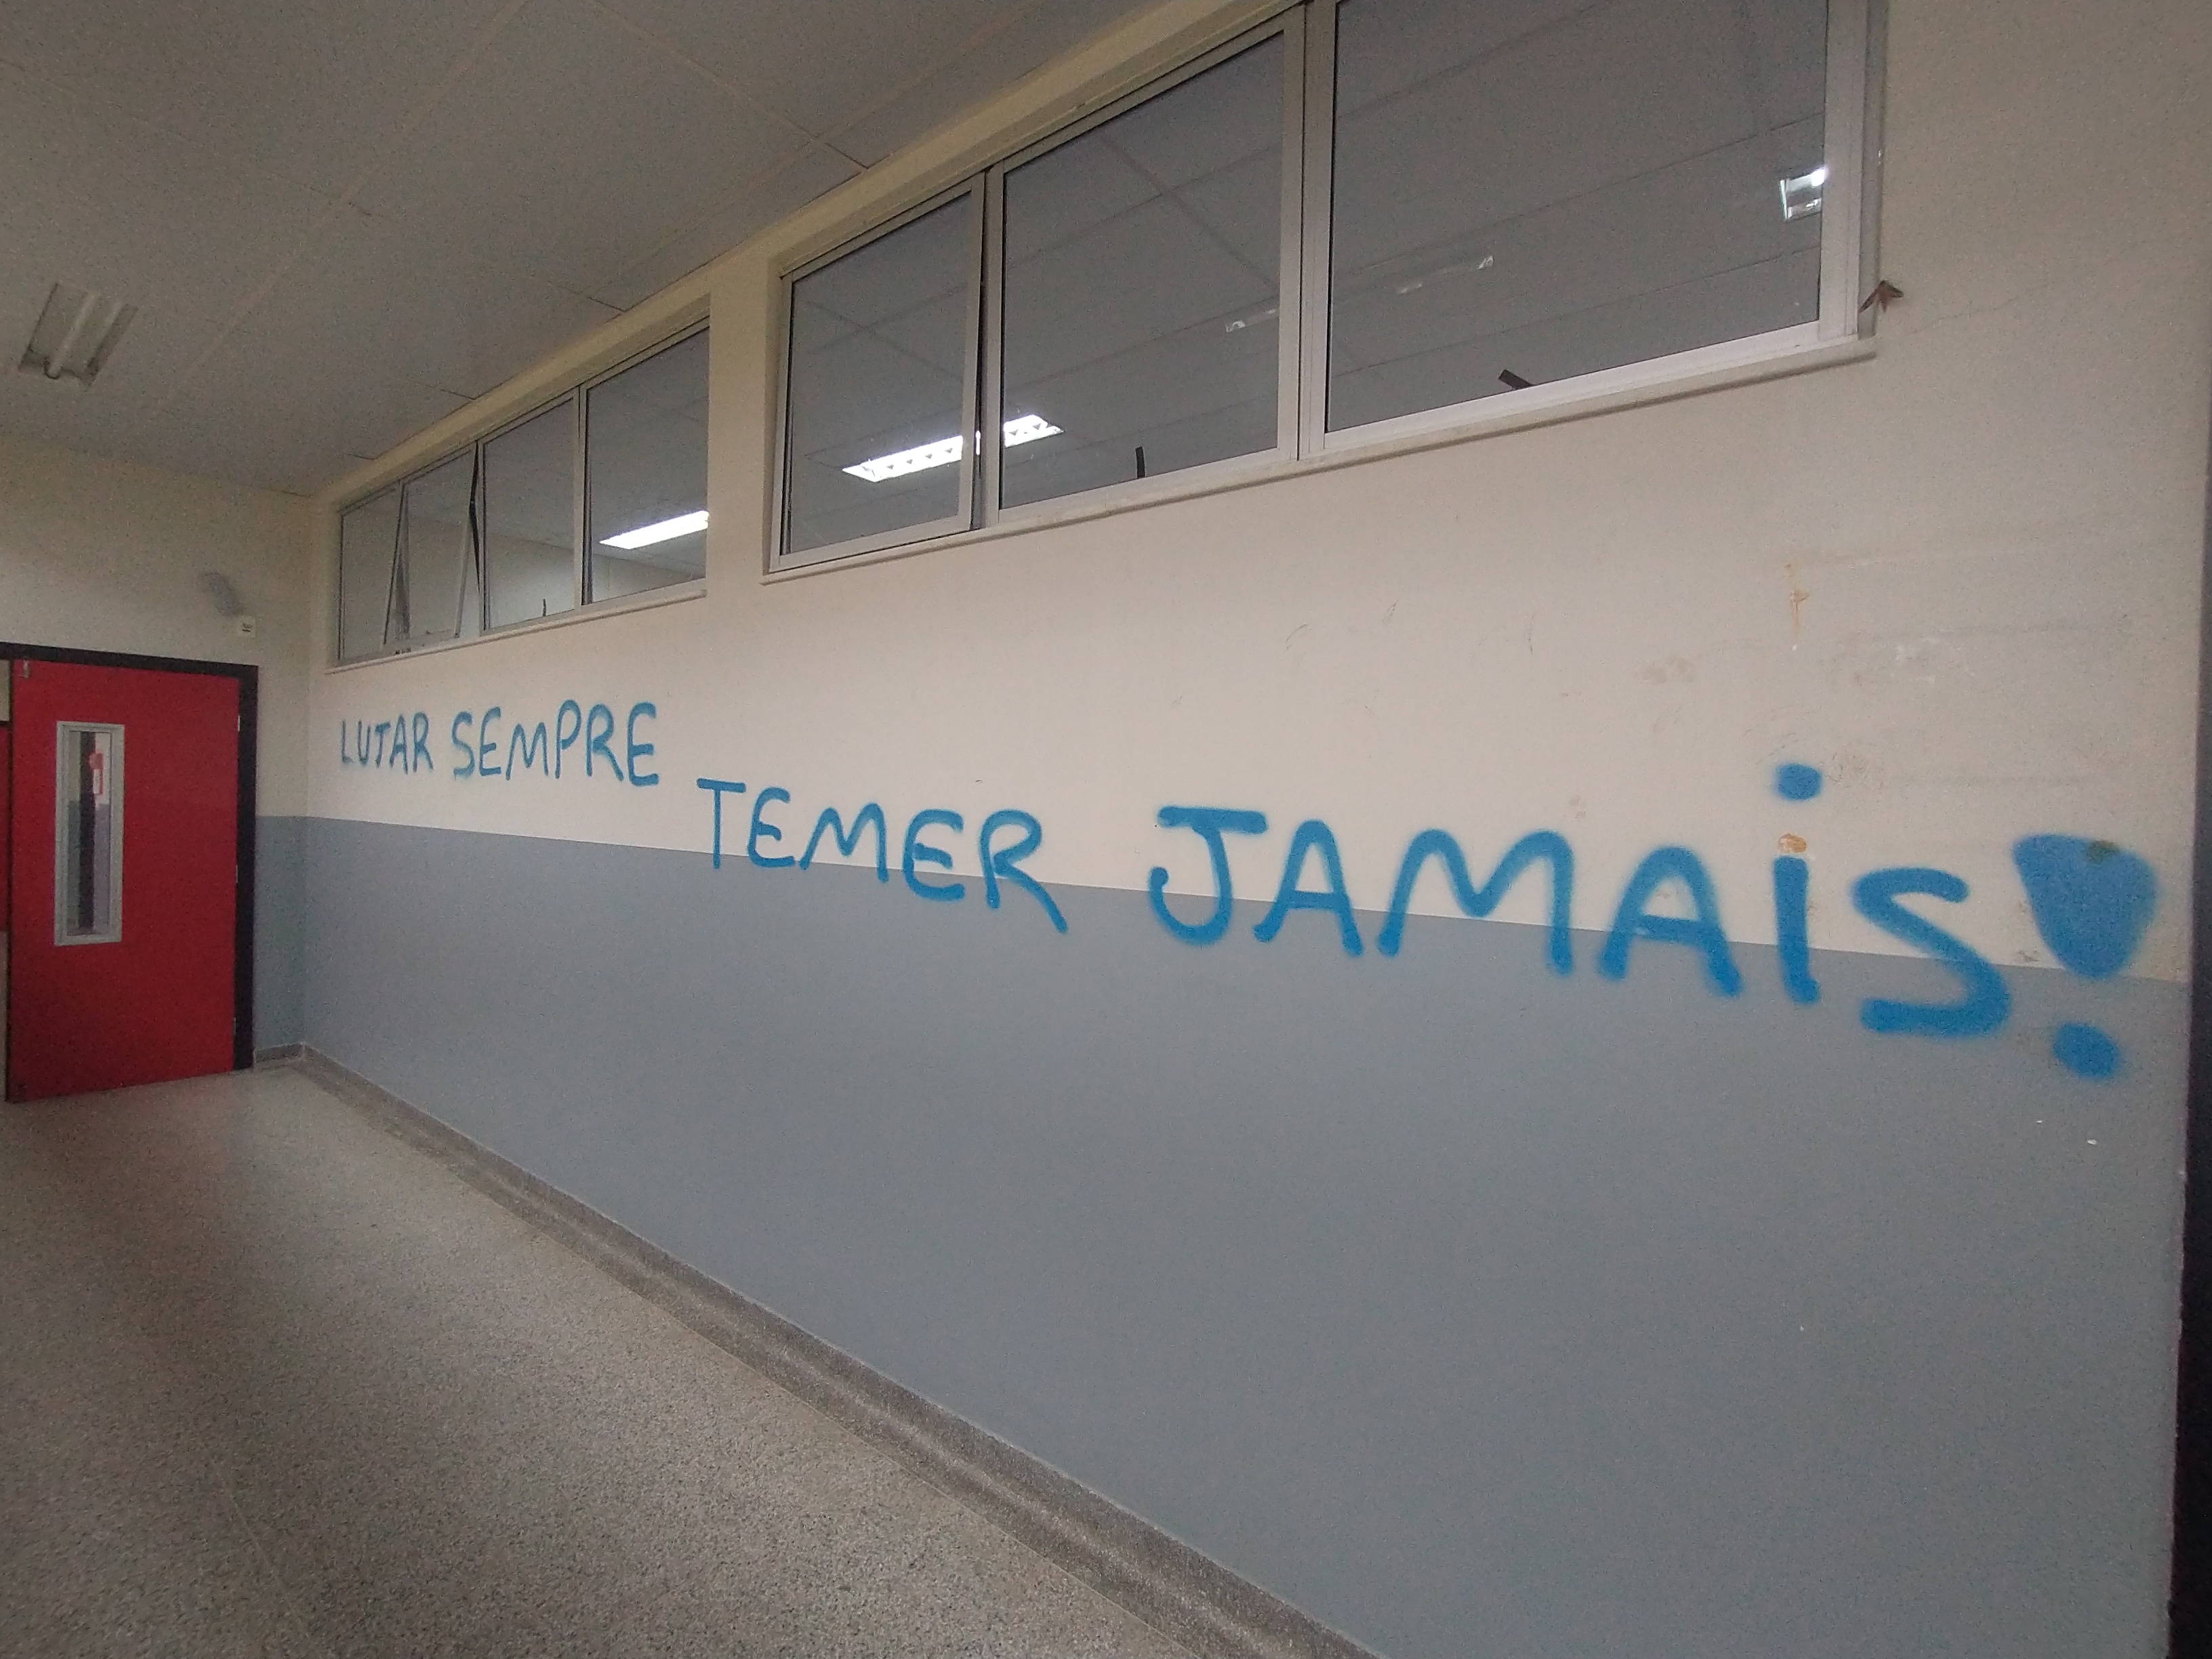 LUTAR SEMPRE
TEMER JAMAiS!